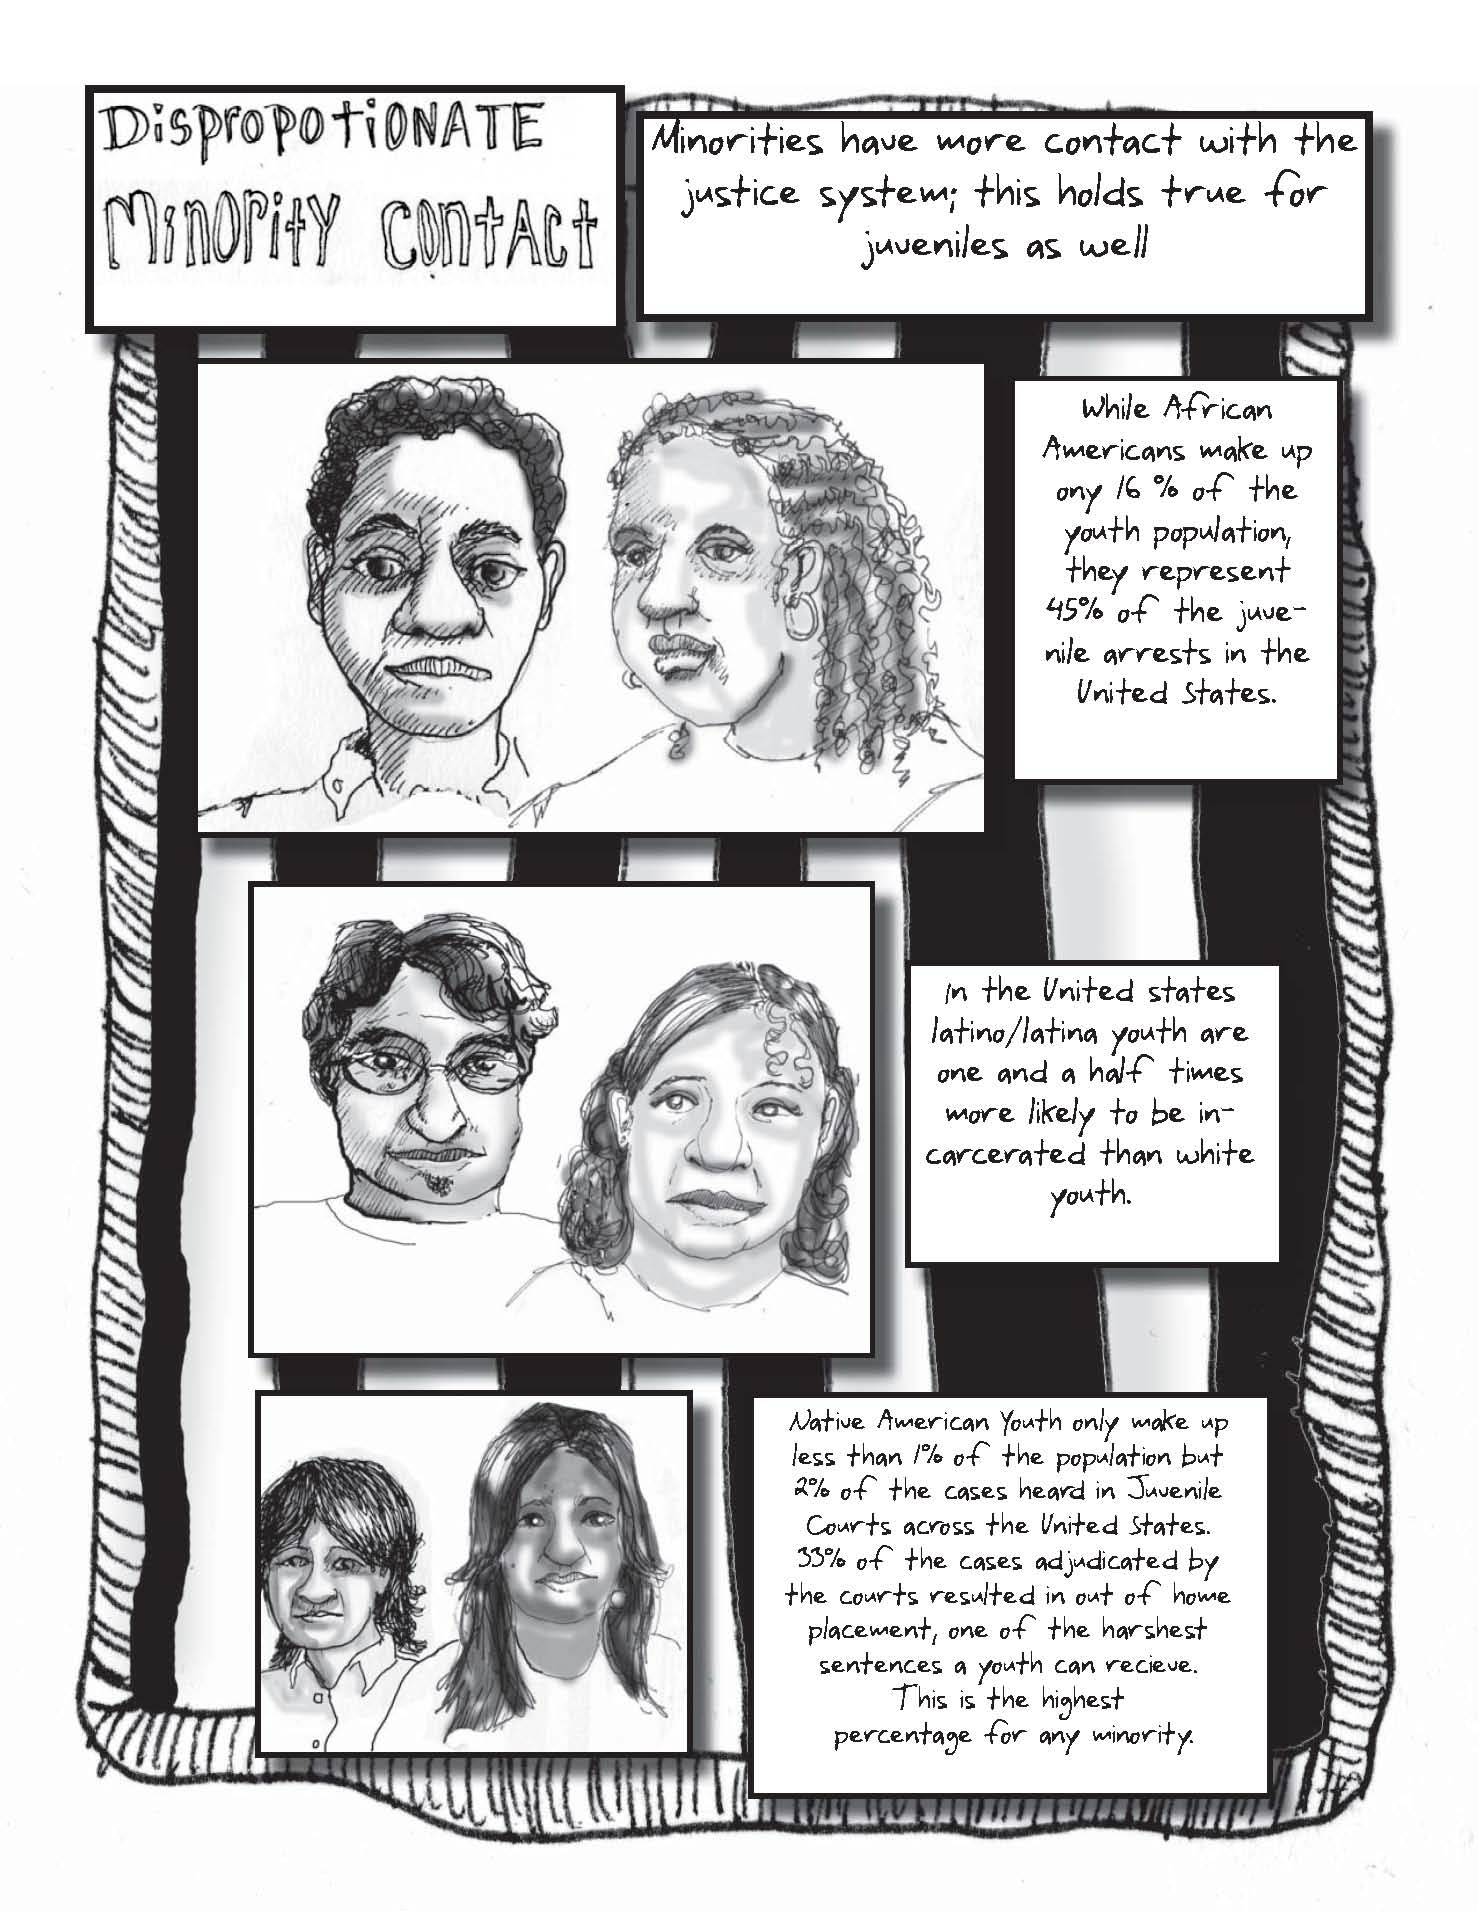 DispropotiONATE
MinoRity CONtAct
Minorities have more contact with the
justice system; this holds true for
juveniles as well
While African
Americans make up
ony 16 % of the
youth population,
they represent
45% of the juve-
nile arrests in the
United States.
In the United states
latino/latina youth are
one and a half times
more likely to be in-
carcerated than white
youth.
Native American Youth only make up
less than 1% of the population but
2% of the cases heard in Juvenile
Courts across the United States.
33% of the cases adjudicated by
the courts resulted in out of home
placement, one of the harshest
sentences a youth can recieve.
This is the highest
percentage for any minority.